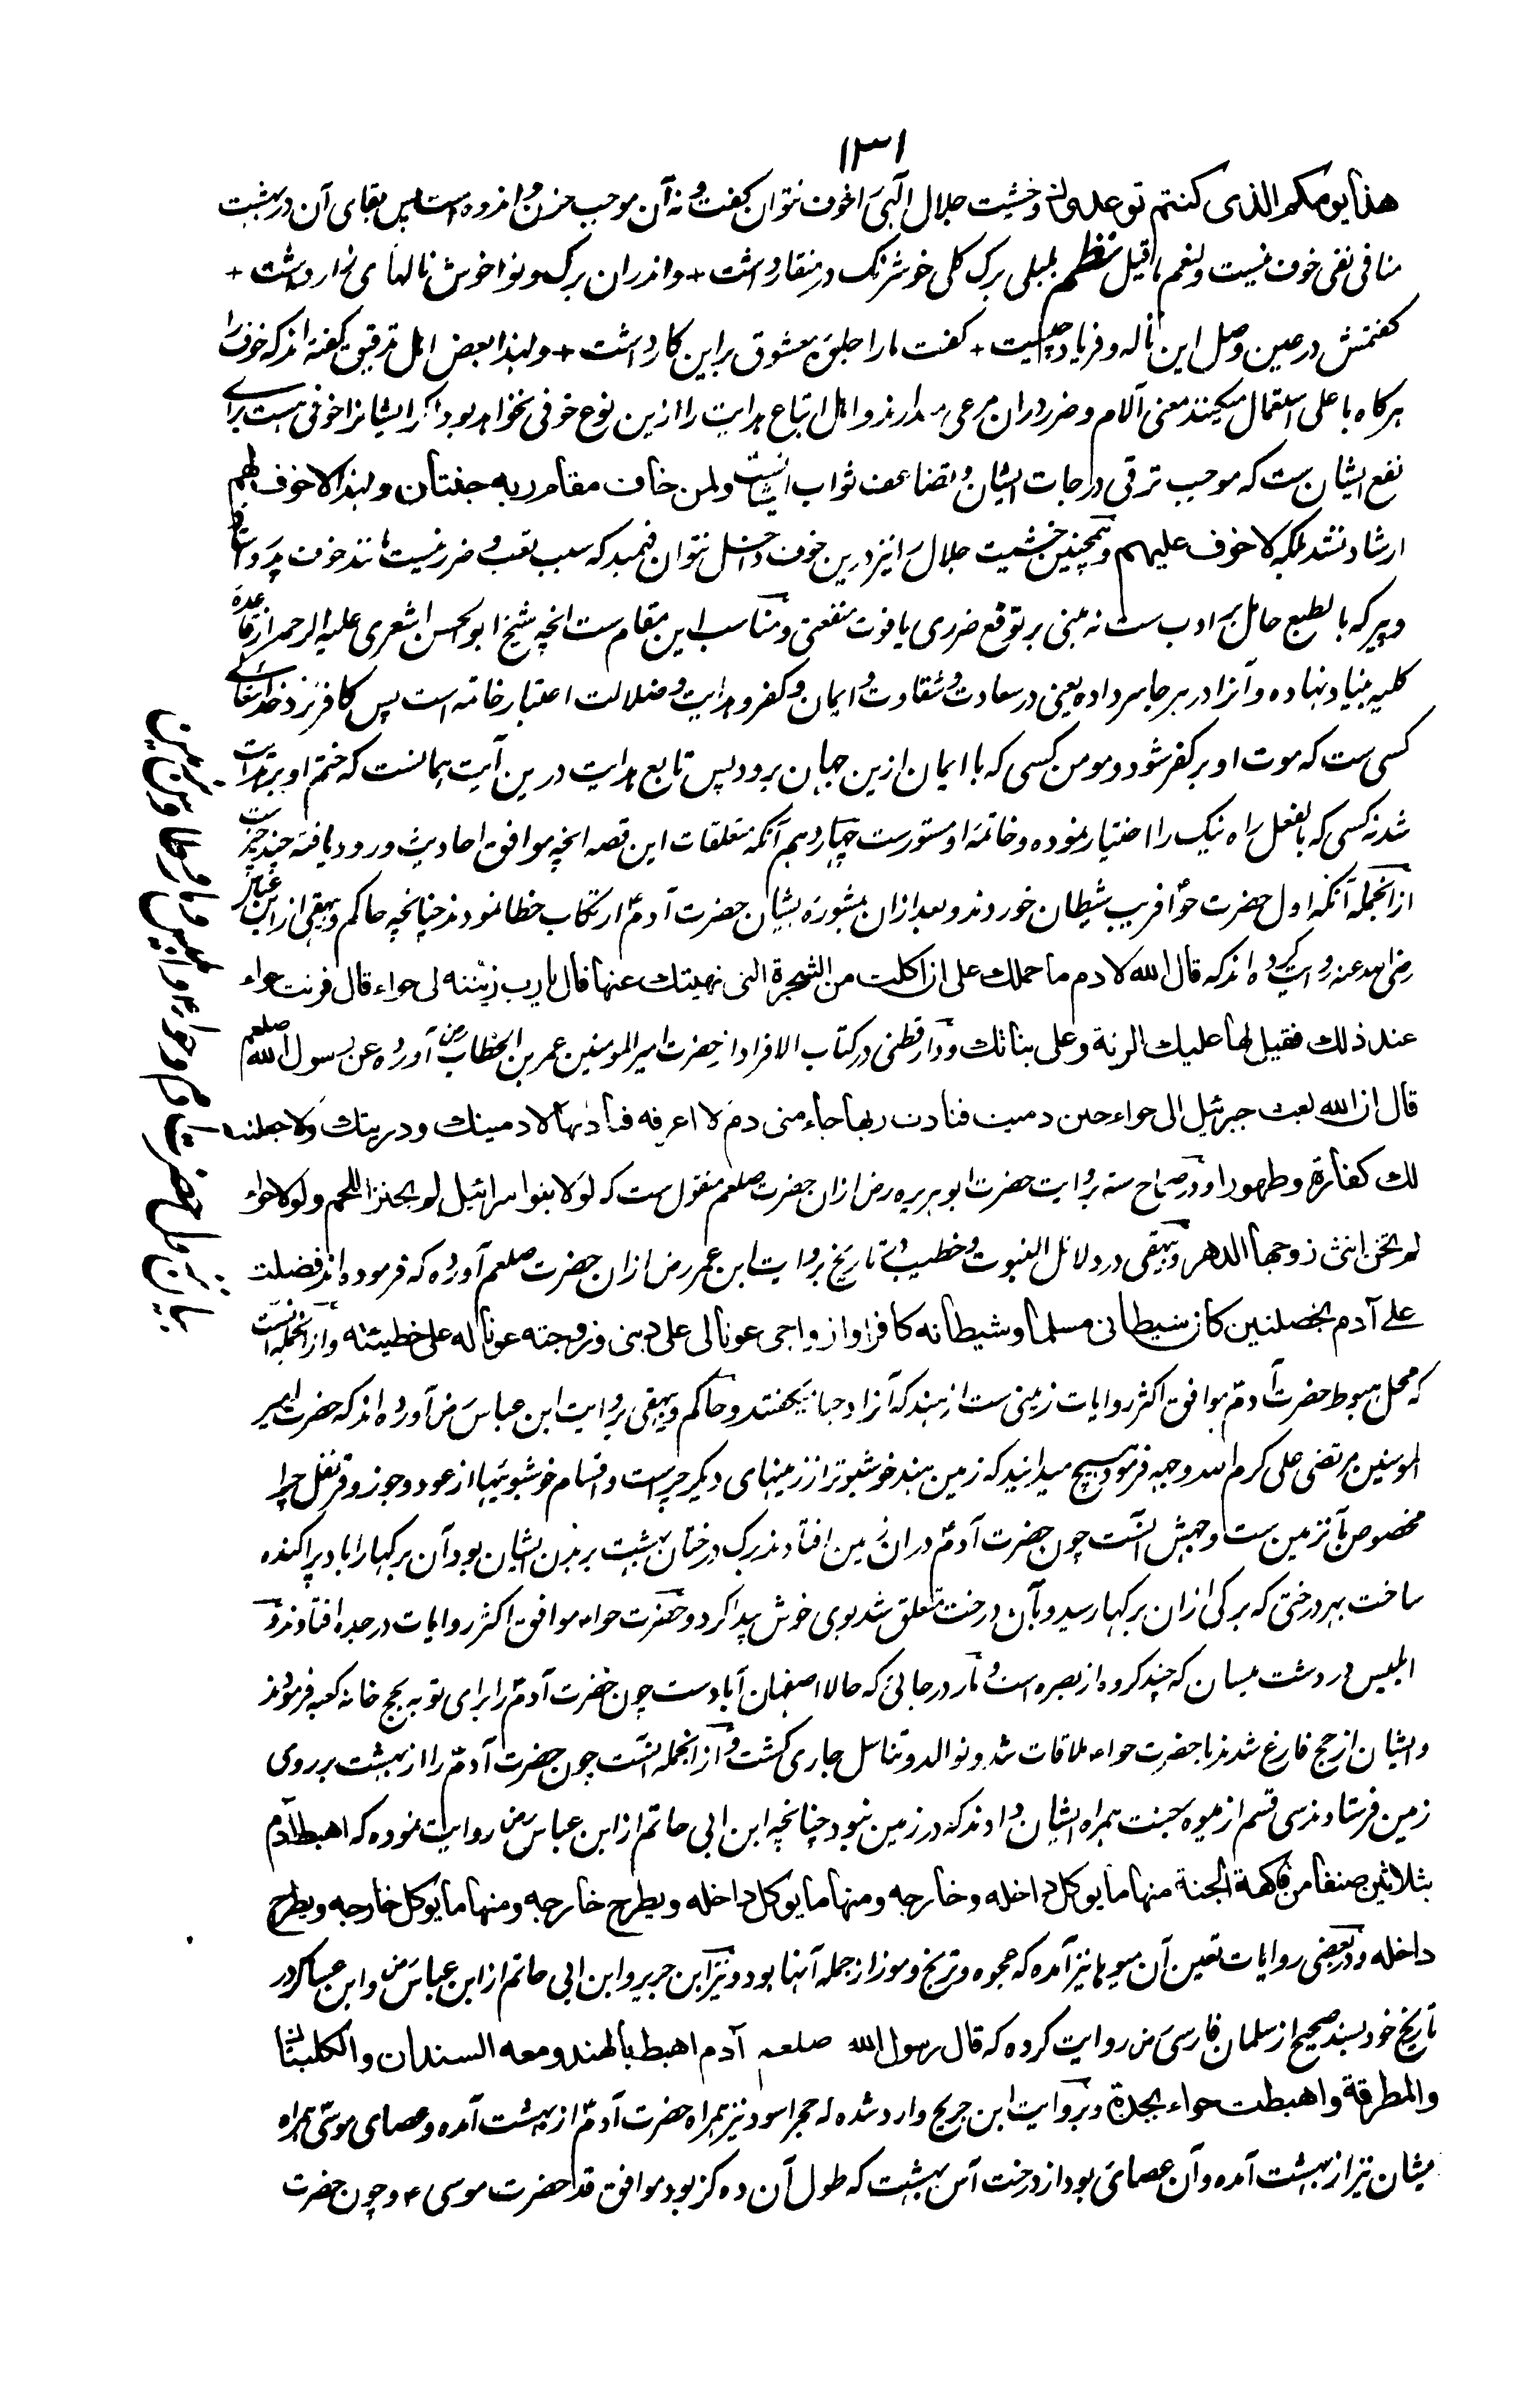 ۱۳۱
هذا یومکم الذی کنتم توعدون و خشیت جلال الٓهی را خوف نتوان گفت و نه آن موجب حزن و اندوه است پس بقای آن در بهشت
منافی نفی خوف نیست و لنعم ما قیل نظم بلبلی برگ گلی خوشرنگ در منقار داشت + و اندران برگ و نوا خوش نالهای زار داشت +
گفتمش در عین وصل این ناله و فریاد چیست + گفت ما را جلوه معشوق بر این کار داشت + و لهذا بعض اهل تدقیق گفته اند که خوف را
هرگاه با علی استعمال میکنند معنی آلام و ضرر دران مرعی میدارند و اهل اتباع هدایت را ازین نوع خوفی نخواهد بود اگر ایشانرا خوفی هست برای
نفع ایشان ست که موجب ترقی درجات ایشان و تضاعف ثواب ایشانست ولمن خاف مقام ربه جنتان و لهذا لا خوف لهم
ارشاد نشد بلکه لا خوف علیهم و همچنین خشیت جلال را نیز درین خوف داخل نتوان فهمید که سبب تعب و ضرر نیست مانند خوف پدر و استاد
و پیر که بالطبع حامل بر ادب ست نه مبنی بر توقع ضرری یا فوت منفعتی و مناسب این مقام ست انچه شیخ ابو الحسن اشعری علیه الرحمه از قاعده
کلیه بنیاد نهاده و آنرا در هر جا سر داده یعنی در سعادت و شقاوت و ایمان و کفر و هدایت و ضلالت اعتبار خاتمه است پس کافر نزد خدایتعالی
کسی ست که موت او بر کفر شود و مومن کسی که با ایمان ازین جهان برود پس تابع هدایت درین آیت همانست که ختم او بر هدایت
شد نه کسی که بالفعل راه نیک را اختیار نموده و خاتمه او مستورست چهاردهم آنکه متعلقات این قصه انچه موافق احادیث ورود یافته چند چیزست
از انجمله آنکه اول حضرت حوّا فریب شیطان خوردند و بعد ازان بمشوره ایشان حضرت آدمؑ ارتکاب خطا نمودند چنانچه حاکم و بیهقی از ابن عباس
رضی الله عنه روایت کرده اند که قال الله لادم ما حملك علی ان اکلت من الشجرة التی نهیتك عنها قال یا رب زینته لی حواء قال فرنت حواء
عند ذلك فقیل لها علیك الرنة وعلی بناتك و دارقطنی در کتاب الافراد از حضرت امیر المومنین عمر بن الخطاب رض آورده عن رسول الله صلعم
قال ان الله بعث جبرئیل الی حواء حین دمیت فنادت ربها جاء منی دم لا اعرفه فناداها لادمینك و ذریتك ولاجعلنه
لك کفارة و طهورا و در صحاح سته بروایت حضرت ابو هریره رض ازان حضرت صلعم منقول ست که لولا بنو اسرائیل لم یخنز اللحم ولولا حواء
لم تخن انثی زوجها الدهر و بیهقی در دلائل النبوت و خطیب در تاریخ بروایت ابن عمر رض ازان حضرت صلعم آورده که فرموده اند فضلت
علی آدم بخصلتین کان شیطانی مسلما وشیطانه کافرا و ازواجی عونا لی علی دینی وزوجته عونا له علی خطیئته و از انجمله انست
که محل هبوط حضرت آدمؑ موافق اکثر روایات زمینی ست از هند که آنرا دجنا میگفتند و حاکم و بیهقی بروایت ابن عباس رض آورده اند که حضرت امیر
المومنین مرتضی علی کرم الله وجهه فرمود هیچ میدانید که زمین هند خوشبوتر از زمینهای دیگر چراست و اقسام خوشبوئیها از عود و جوز و قرنفل چرا
مخصوص بآنزمین ست وجهش انست چون حضرت آدمؑ دران زمین افتادند برگ درختان بهشت بر بدن ایشان بود آن برگها را باد پراکنده
ساخت بهر درختی که برگی ازان برگها رسید و بآن درخت متعلق شد بوی خوش پیدا کرد و حضرت حواء موافق اکثر روایات در جده افتادند و
ابلیس در دشت میسان که چند کروه از بصره است و مار در جائی که حالا اصفهان آبادست چون حضرت آدمؑ را برای توبه بحج خانه کعبه فرمودند
و ایشان از حج فارغ شدند با حضرت حواء ملاقات شد و توالد و تناسل جاری گشت و از انجمله انست چون حضرت آدمؑ را از بهشت بر روی
زمین فرستادند سی قسم از میوه جنت همراه ایشان دادند که در زمین نبود چنانچه ابن ابی حاتم از ابن عباس رض روایت نموده که اهبط آدم
بثلاثین صنفا من فاکهة الجنة منها ما یوکل داخله وخارجه ومنها ما یوکل داخله ویطرح خارجه ومنها ما یوکل خارجه ویطرح
داخله و در بعضی روایات تعین آن میوها نیز آمده که عجوه و ترنج و موز از جمله آنها بود و نیز ابن جریر و ابن ابی حاتم از ابن عباس رض و ابن عساکر در
تاریخ خود بسند صحیح از سلمان فارسی رض روایت کرده که قال رسول الله صلعم آدم اهبط بالهند ومعه السندان والکلبتان
والمطرقة واهبطت حواء بجدة و بروایت ابن جریج وارد شده که حجر اسود نیز همراه حضرت آدمؑ از بهشت آمده و عصای موسی همراه
ایشان نیز از بهشت آمده و آن عصائی بود از درخت آس بهشت که طول آن ده گز بود موافق قد حضرت موسی ؑ و چون حضرت
بیان محل حضرت آدم و حواء و ابلیس و مار